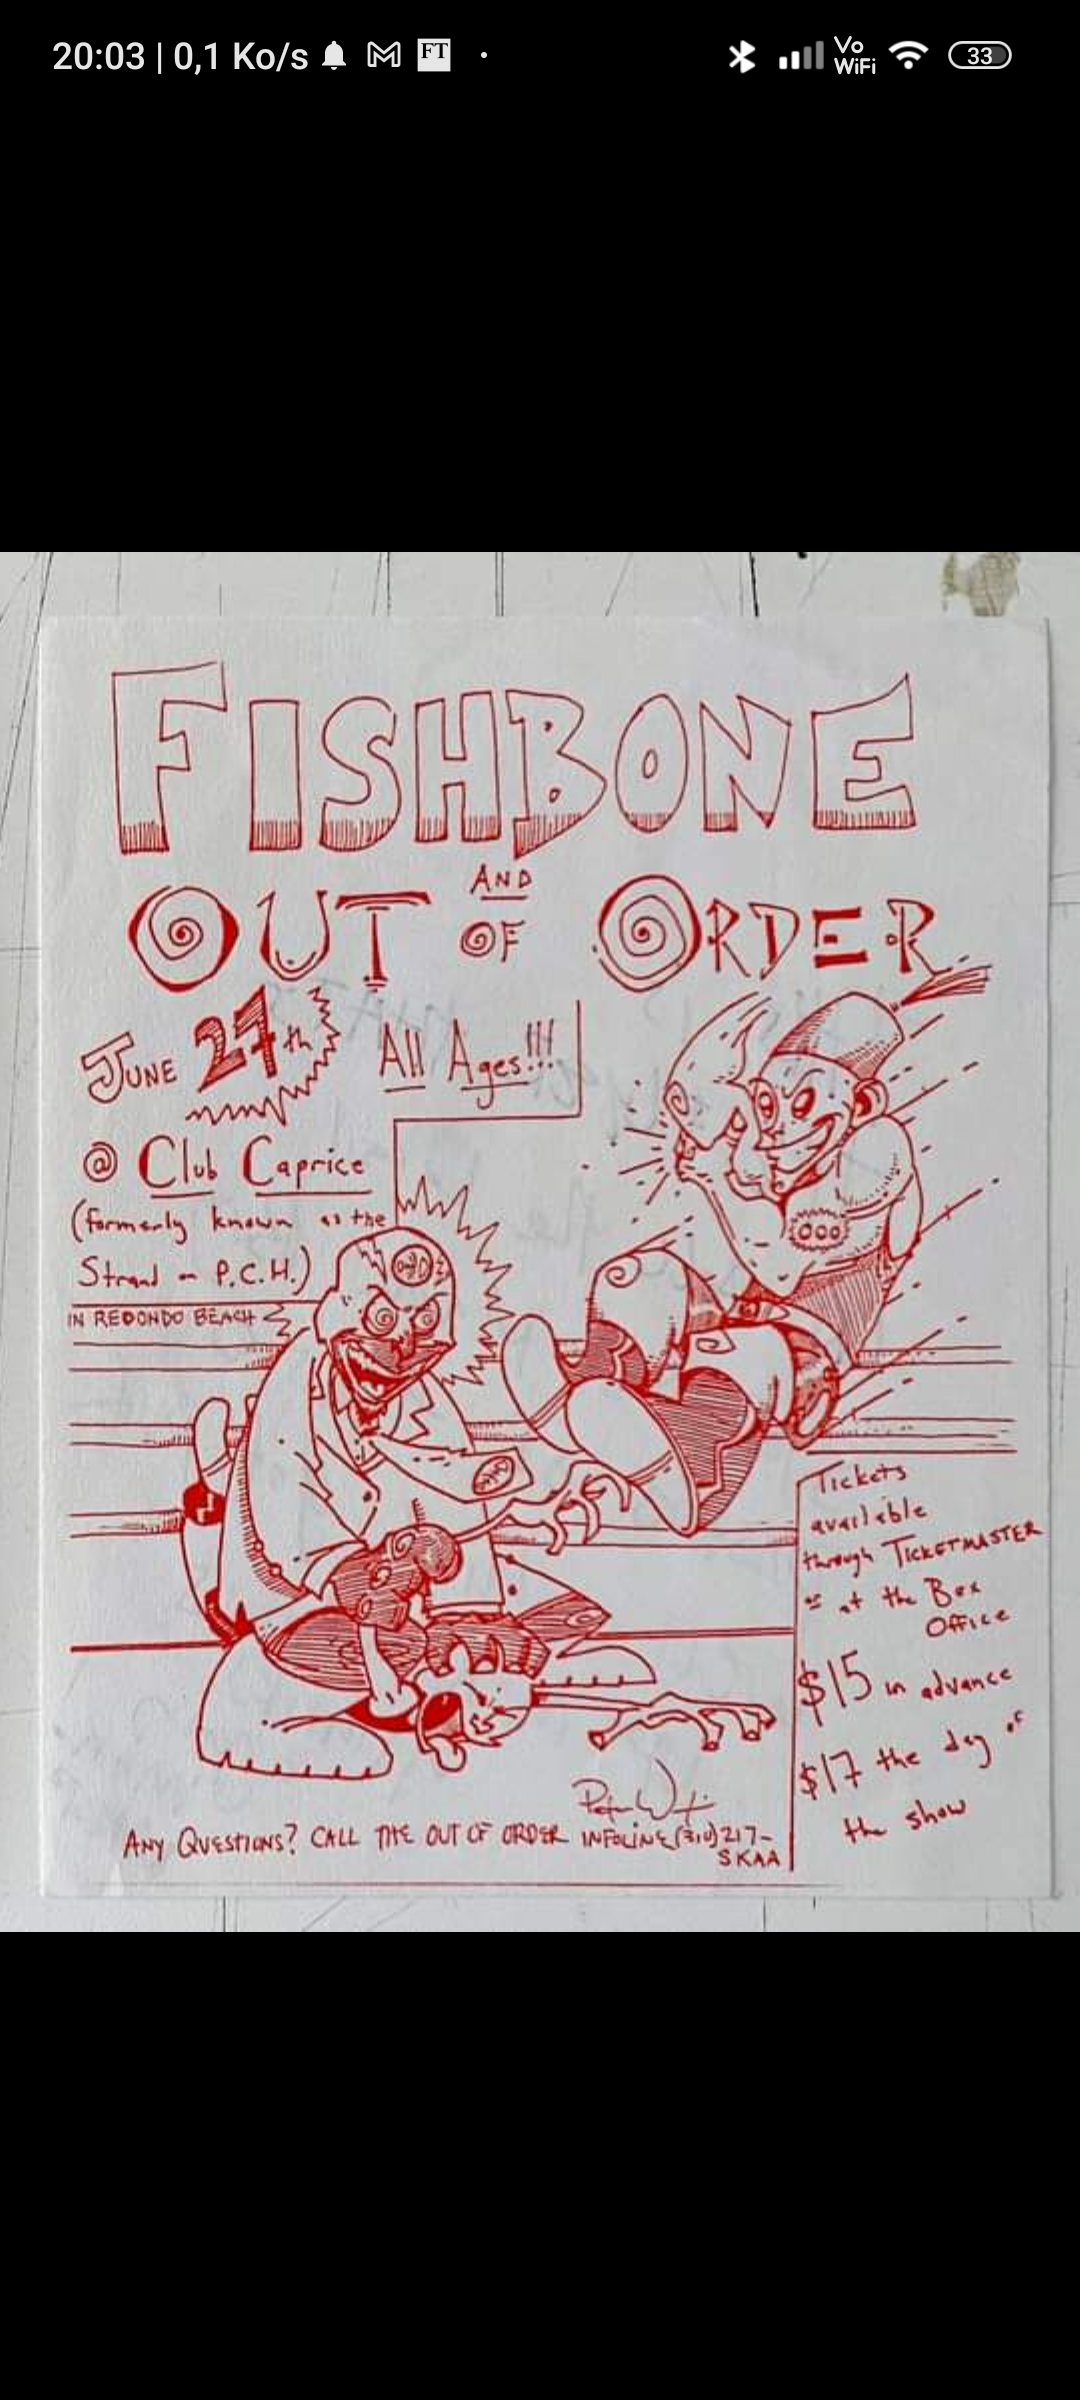 20:03 | 0,1 Ko/s
FT
Vo
WiFi
33
FISHBONE
AND
OUT OF ORDER
JUNE 27th
All Ages!!!
@ Club Caprice
(formerly known as the
Strand on P.C.H.)
IN REDONDO BEACH
Tickets
available
through TICKETMASTER
or at the Box
Office
$15 in advance
$17 the day of
the show
ANY QUESTIONS? CALL THE OUT OF ORDER INFOLINE (310) 217-
SKAA